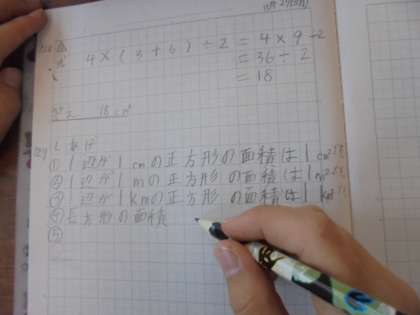 4×(3+6)÷2=4×9÷2
=36÷2
=18
答え 18cm²
①1辺が1cmの正方形の面積は1cm²
②1辺が1mの正方形の面積は1m²
③1辺が1kmの正方形の面積は1km²
④長方形の面積
⑤